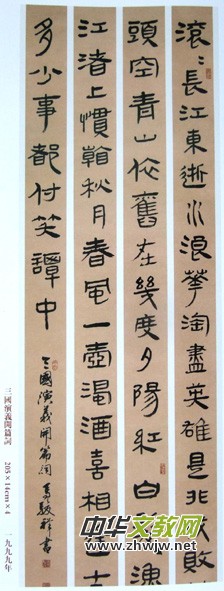 滾〻長江東逝水浪華淘盡英雄是非成敗
頭空青山依舊在幾度夕陽紅白髮漁
江渚上慣看秋月春風一壺濁酒喜相逢
多少事都付笑譚中
三國演義開篇詞
書
三國演義開篇詞 205×14cm×4 一九九九年
中华文教网
www.zhwjw.net